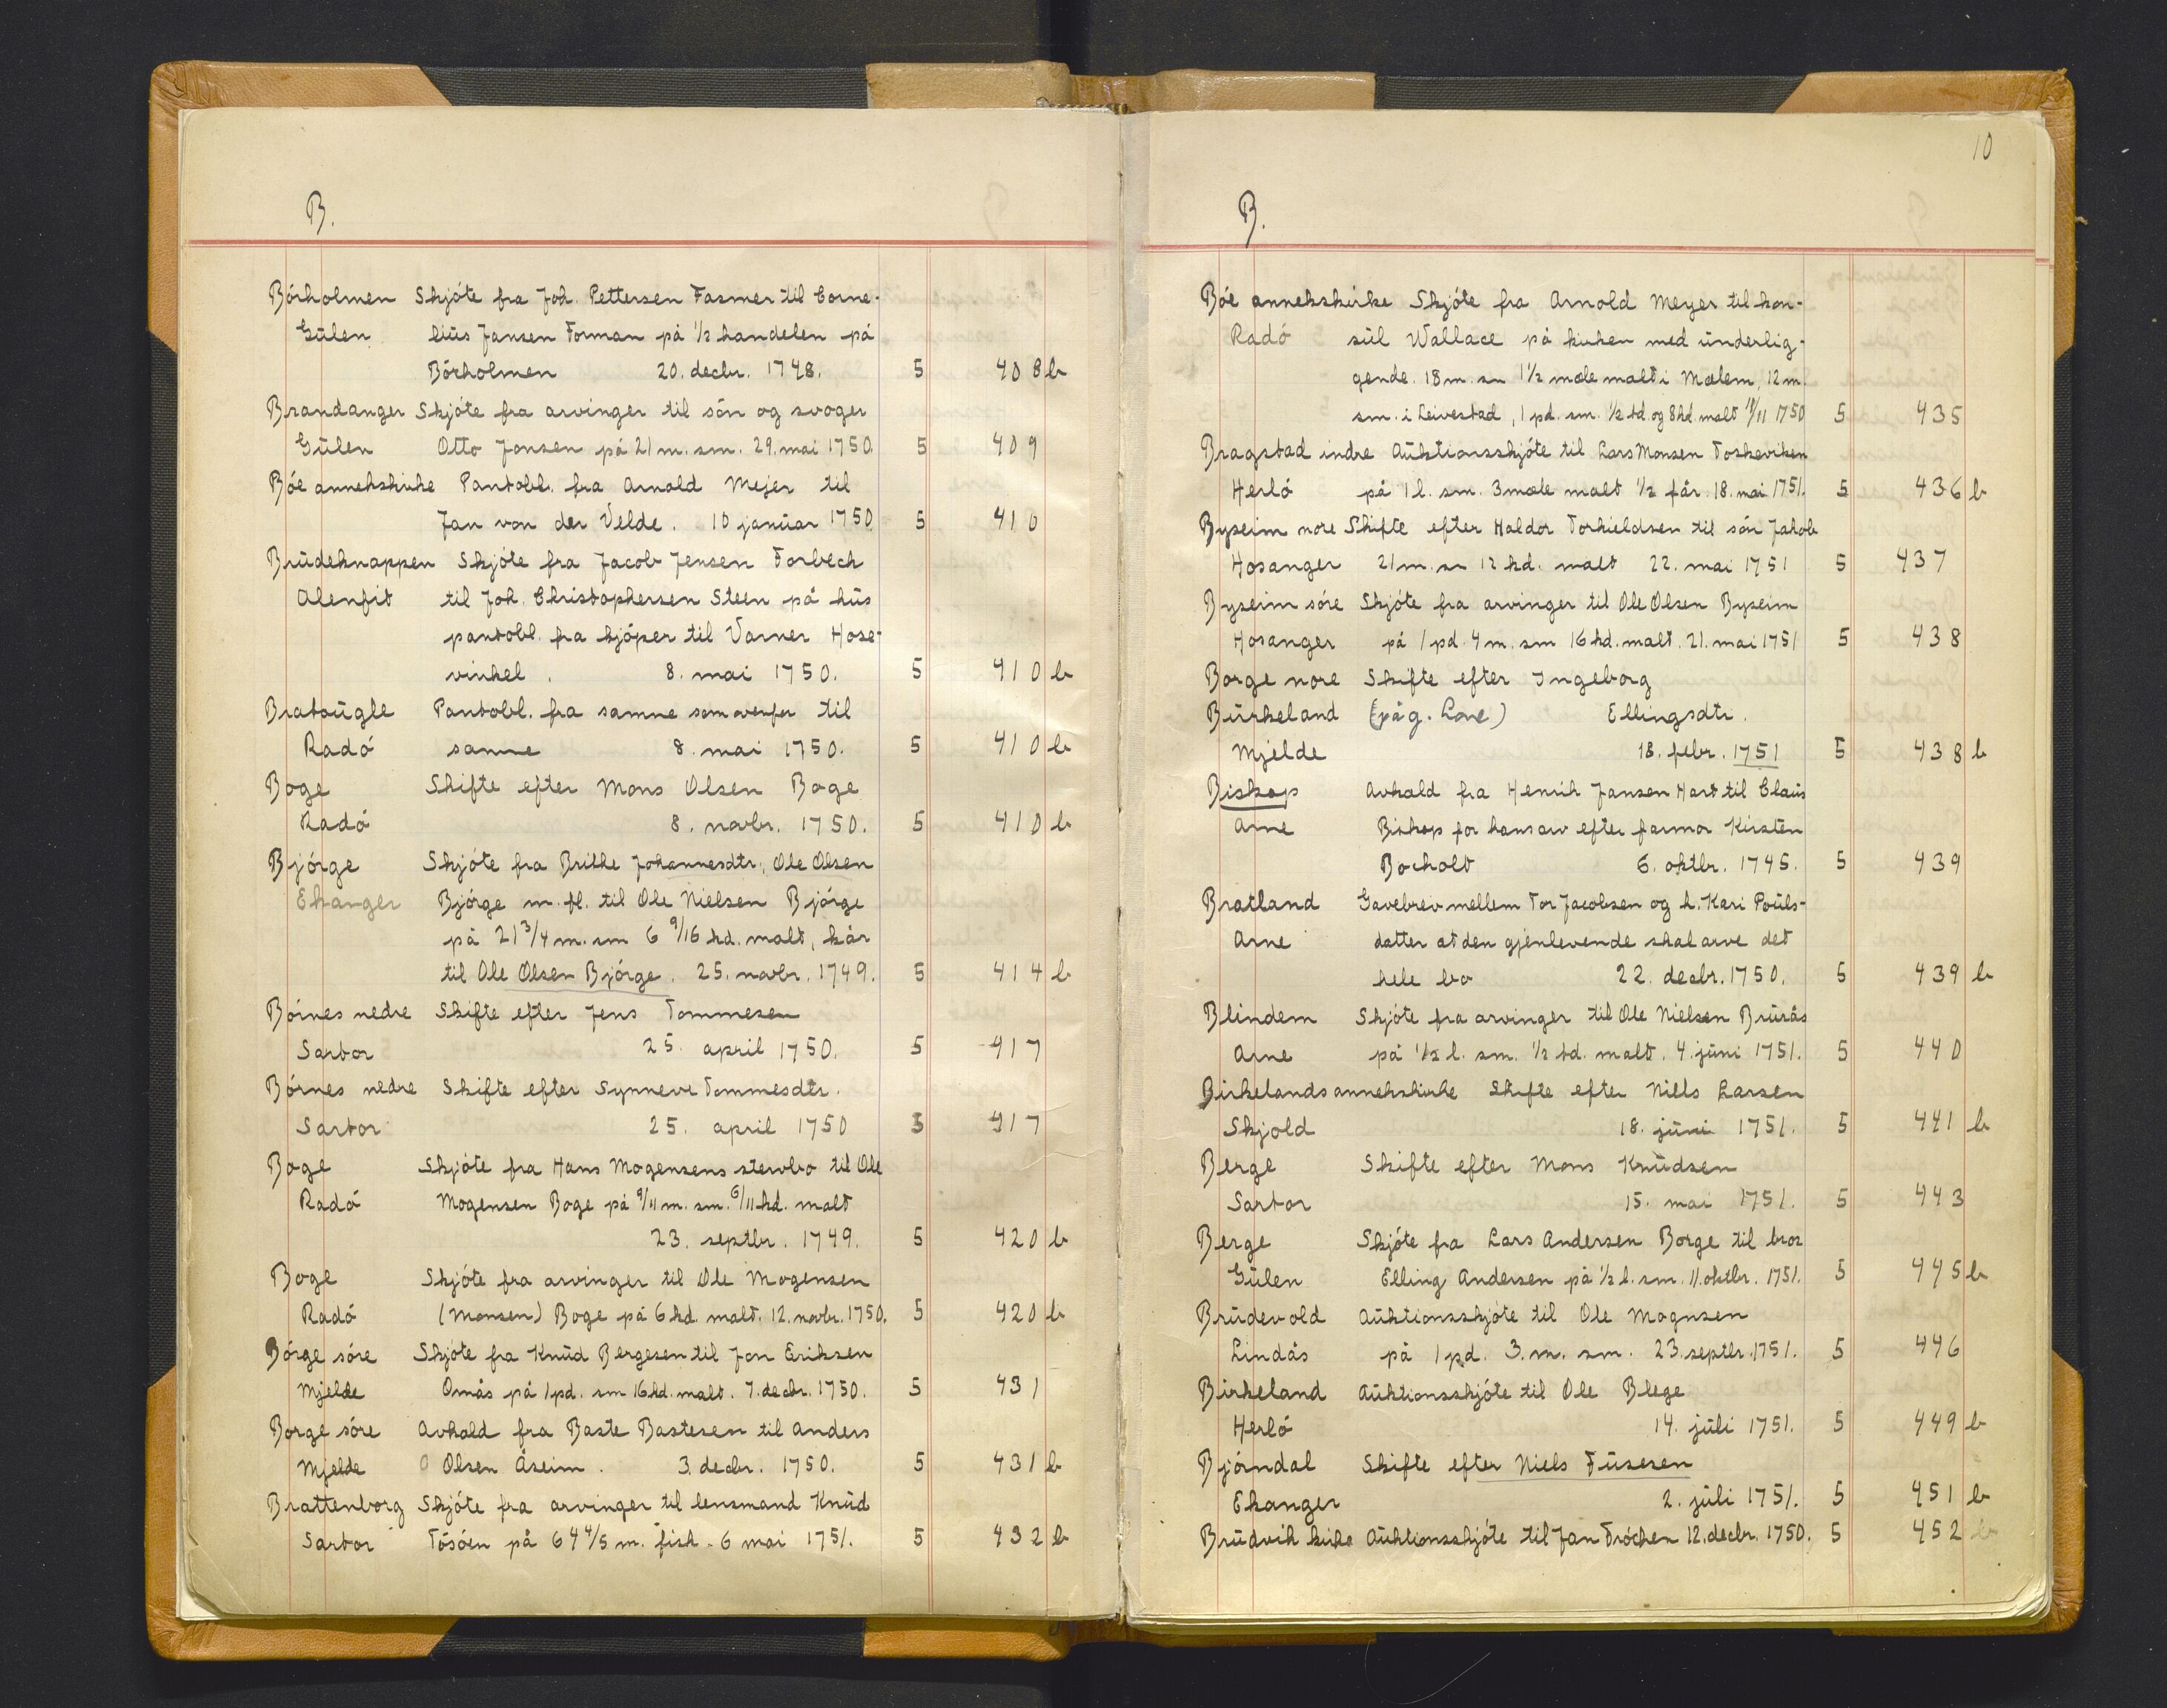 B.
Börholmen Skjöte fra Joh. Pettersen Fasmer til Corne-
Gülen leiüs Jansen Forman på 1/2 handelen på
Börholmen 20. decbr. 1748. 5 408 b
Brandanger Skjöte fra arvinger til sön og svoger
Gülen Otto Jansen på 21 m. sm. 29. mai 1750. 5 409
Böe annekskirke Pantobl. fra Arnold Mejer til
Jan von der Velde. 10 janüar 1750 5 410
Brüdeknappen Skjöte fra Jacob Jensen Forbech
Alenfit til Joh. Christophersen Steen på hüs
pantobl. fra kjöper til Varner Hose-
vinkel. 8. mai 1750. 5 410 b
Bratoügle Pantobl. fra samme som ovenfor til
Radö samme 8. mai 1750. 5 410 b
Boge Skifte efter Mons Olsen Boge
Radö 8. novbr. 1750. 5 410 b
Bjørge Skjöte fra Brithe Johannesdtr, Ole Olsen
Ekanger Bjørge m. fl. til Ole Nielsen Bjørge
på 21 3/4 m. sm 6 9/16 hd. malt, kår
til Ole Olsen Bjørge. 25. novbr. 1749. 5 414 b
Börnes nedre Skifte efter Jens Tommesen
Sartor 25. april 1750. 5 417
Börnes nedre Skifte efter Synneve Tommesdtr.
Sartor 25. april 1750 5 417
Boge Skjöte fra Hans Mogensens stervbo til Ole
Radö Mogensen Boge på 9/11 m. sm. 6/11 hd. malt
23. septbr. 1749. 5 420 b
Boge Skjöte fra arvinger til Ole Mogensen
Radö (Monsen) Boge på 6 hd. malt. 12. novbr. 1750. 5 420 b
Börge söre Skjöte fra Knüd Bergesen til Jon Eriksen
Mjelde Omås på 1 pd. sm 16 hd. malt. 7. decbr. 1750. 5 431
Borge söre Avkald fra Baste Bastesen til Anders
Mjelde Olsen Åseim. 3. decbr. 1750. 5 431 b
Brattenborg Skjöte fra arvinger til lensmand Knüd
Sartor Tösöen på 64 4/5 m. fisk. 6 mai 1751. 5 432 b
10
B.
Böe annekskirke Skjöte fra Arnold Meyer til kon-
Radö sül Wallace på kirken med ünderlig-
gende. 18 m. sm 1 1/2 mæle malt i Mælem, 12 m.
sm. i Leivestad, 1 pd. sm. 1/2 td. og 8 hd. malt 11/11 1750 5 435
Bragstad indre Aüktionsskjöte til Lars Monsen Toskeviken
Herlö på 1 l. sm. 3 mæle malt 1/2 får. 18. mai 1751. 5 436 b
Byseim nore Skifte efter Haldor Torkieldsen til sön Jakob
Hosanger 21 m. sm 12 hd. malt 22. mai 1751 5 437
Byseim söre Skjöte fra arvinger til Ole Olsen Byseim
Hosanger på 1 pd. 4 m. sm 16 hd. malt. 21. mai 1751 5 438
Borge nore Skifte efter Ingeborg
Bürkeland (på g. Lone) Ellingsdtr.
Mjelde 18. febr. 1751 5 438 b
Biskop Avkald fra Henrik Jansen Hart til Claüs
Arne Biskop for hans arv efter farmor Kirsten
Bocholt 6. oktbr. 1745. 5 439
Bratland Gavebrev mellem Tor Jacobsen og h. Kari Poüls-
Arne datter at den gjenlevende skal arve det
hele bo 22. decbr. 1750. 5 439 b
Blindem Skjöte fra arvinger til Ole Nielsen Brürås
Arne på 1/2 l. sm. 1/2 td. malt. 4. jüni 1751. 5 440
Birkelands annekskirke Skifte efter Niels Larsen
Skjold 18. jüni 1751. 5 441 b
Berge Skifte efter Mons Knüdsen
Sartor 15. mai 1751. 5 443
Berge Skjöte fra Lars Andersen Borge til bror
Gülen Elling Andersen på 1/2 l. sm. 11. oktbr. 1751. 5 445 b
Brüdevold Aüktionsskjöte til Ole Magnsen
Lindås på 1 pd. 3. m. sm. 23. septbr. 1751. 5 446
Birkeland Aüktionsskjöte til Ole Blege
Herlö 14. jüli 1751. 5 449 b
Bjørndal Skifte efter Niels Füsesen
Ekanger 2. jüli 1751. 5 451 b
Brüdvik kirke Aüktionsskjöte til Jan Fröchen 12. decbr. 1750. 5 452 b